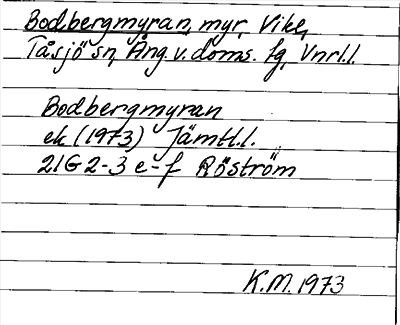 Bodbergmyran, myr, Vike,
Tåsjö sn, Ång. v. doms. fg, Vnrl.l.
Bodbergmyran
ek (1973) Jämtl.l.
21G 2-3 e-f Röström
K.M. 1973